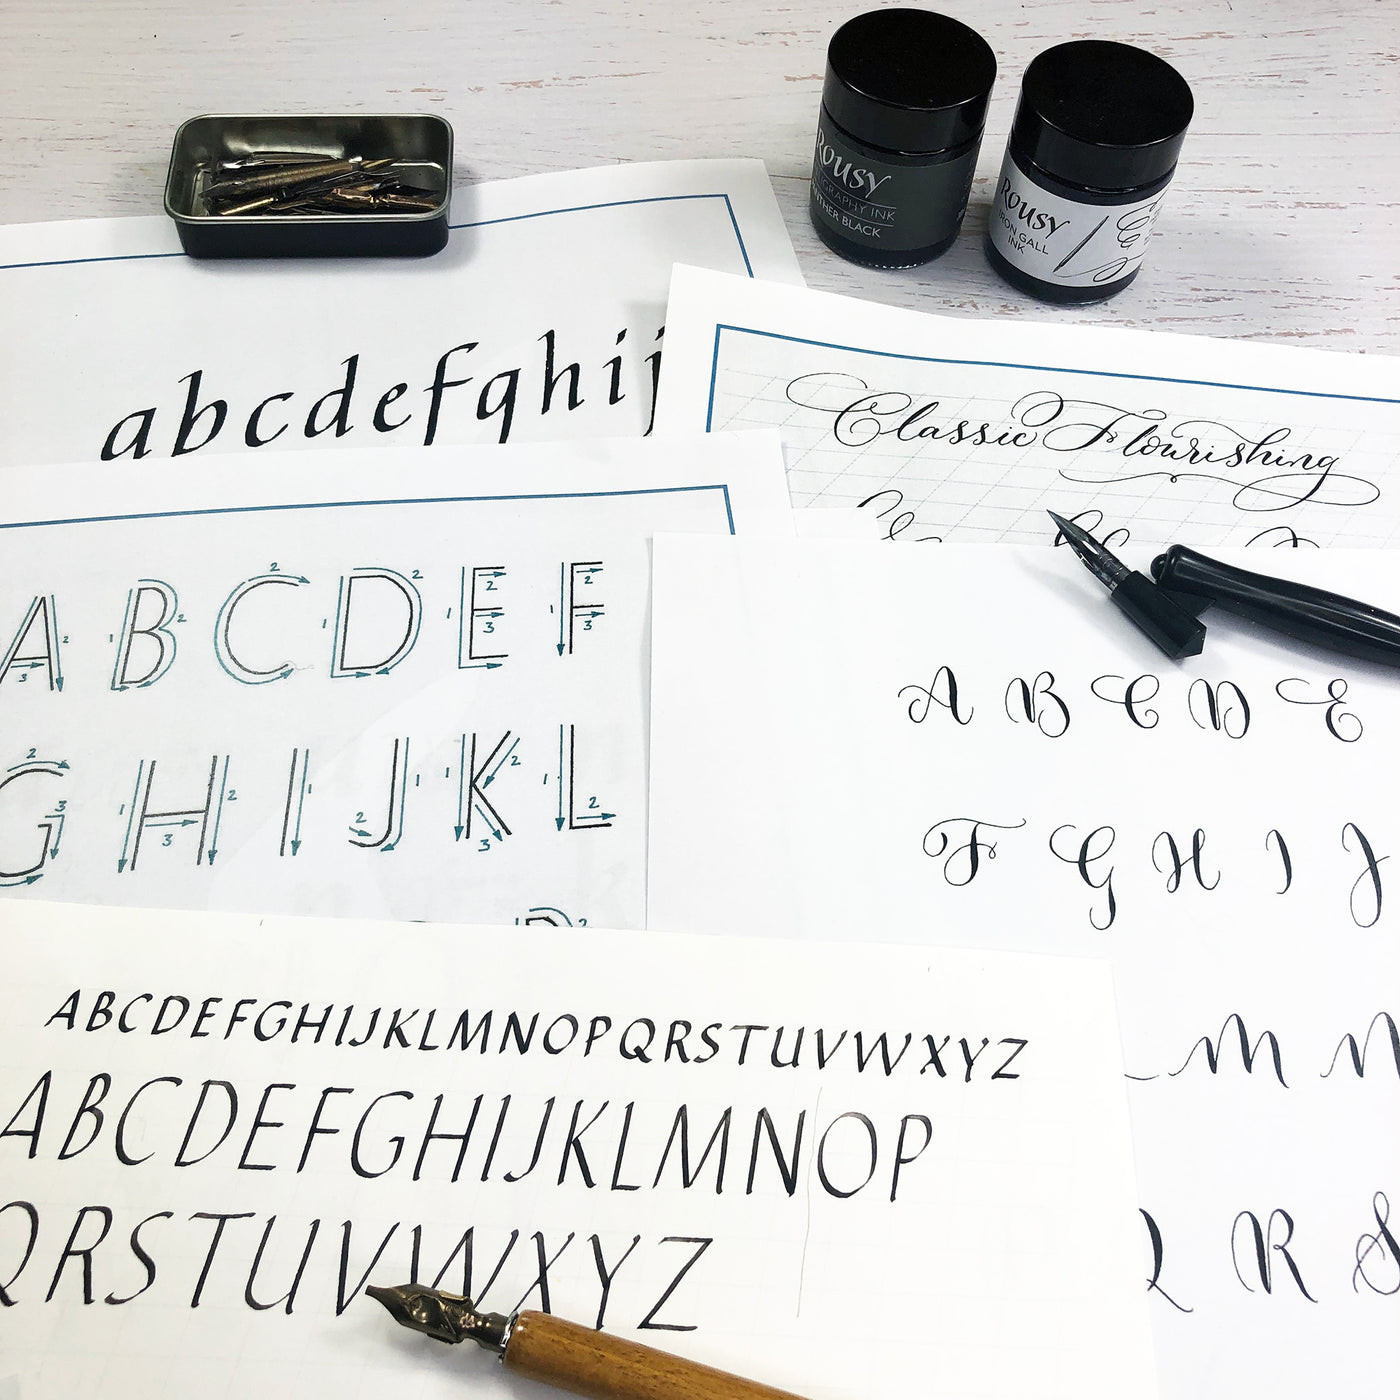 Rousy
CALLIGRAPHY INK
PANTHER BLACK
Rousy
IRON GALL
INK
abcdefghij
Classic Flourishing
A B C D E F
G H I J K L
A B C D E
F G H I J
M N
Q R S
ABCDEFGHIJKLMNOPQRSTUVWXYZ
ABCDEFGHIJKLMNOP
QRSTUVWXYZ